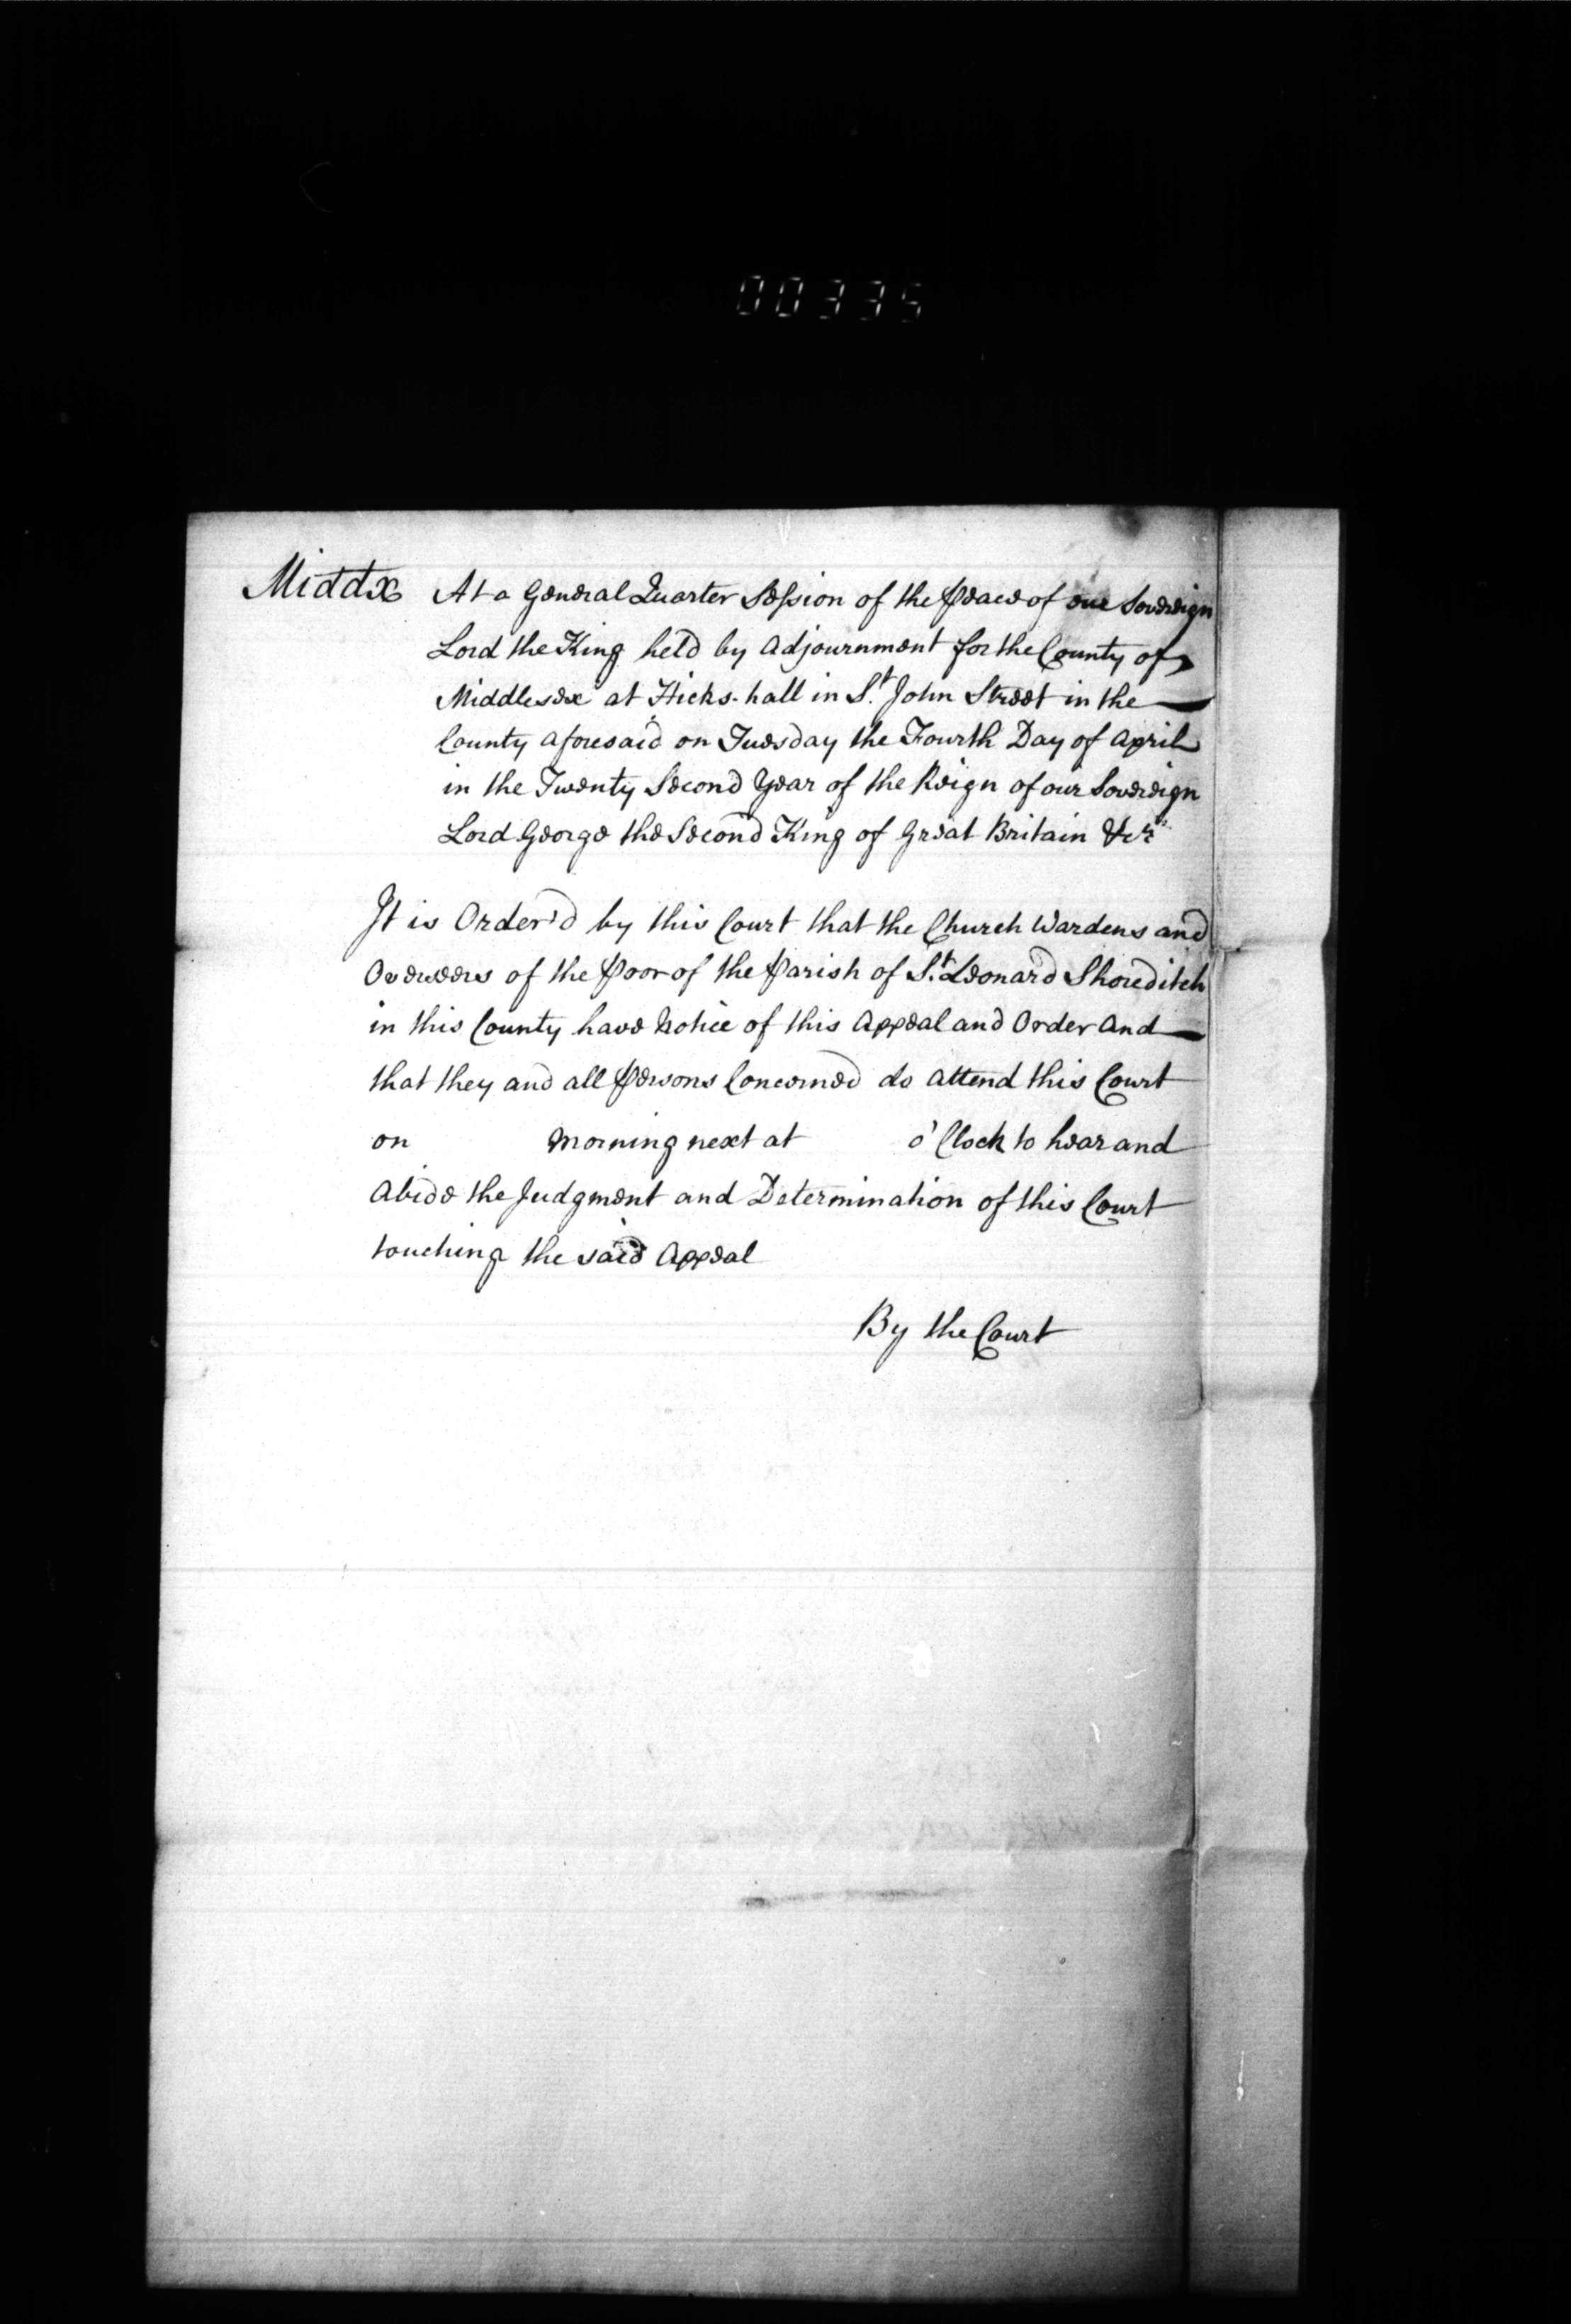 00335
Middx At a General Quarter Session of the Peace of our Sovereign
Lord the King held by Adjournment for the County of
Middlesex at Hicks-hall in St. John Street in the
County aforesaid on Tuesday the Fourth Day of April
in the Twenty Second Year of the Reign of our Sovereign
Lord George the Second King of Great Britain &c
It is Order'd by this Court that the Church Wardens and
Overseers of the Poor of the Parish of St. Leonard Shoreditch
in this County have Notice of this Appeal and Order And
that they and all Persons Concerned do attend this Court
on Morning next at o'Clock to hear and
Abide the Judgment and Determination of this Court
touching the said Appeal
By the Court